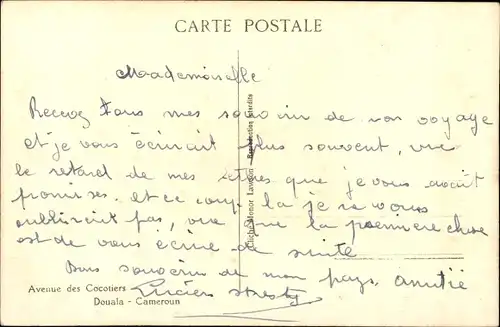 CARTE POSTALE
Mademoiselle
Recevez tous mes souvenir de mon voyage
et je vous écrirait plus souvent, vue
le retard de mes lettres que je vous avait
promises. et ce coup la je ne vous
oublirait pas, vue que la première chose
est de vous écrire de suite
Bons souvenirs de mon pays. amitié
Lucien
Avenue des Cocotiers
Douala - Cameroun
Cliché Monor Lavagne — Reproduction interdite